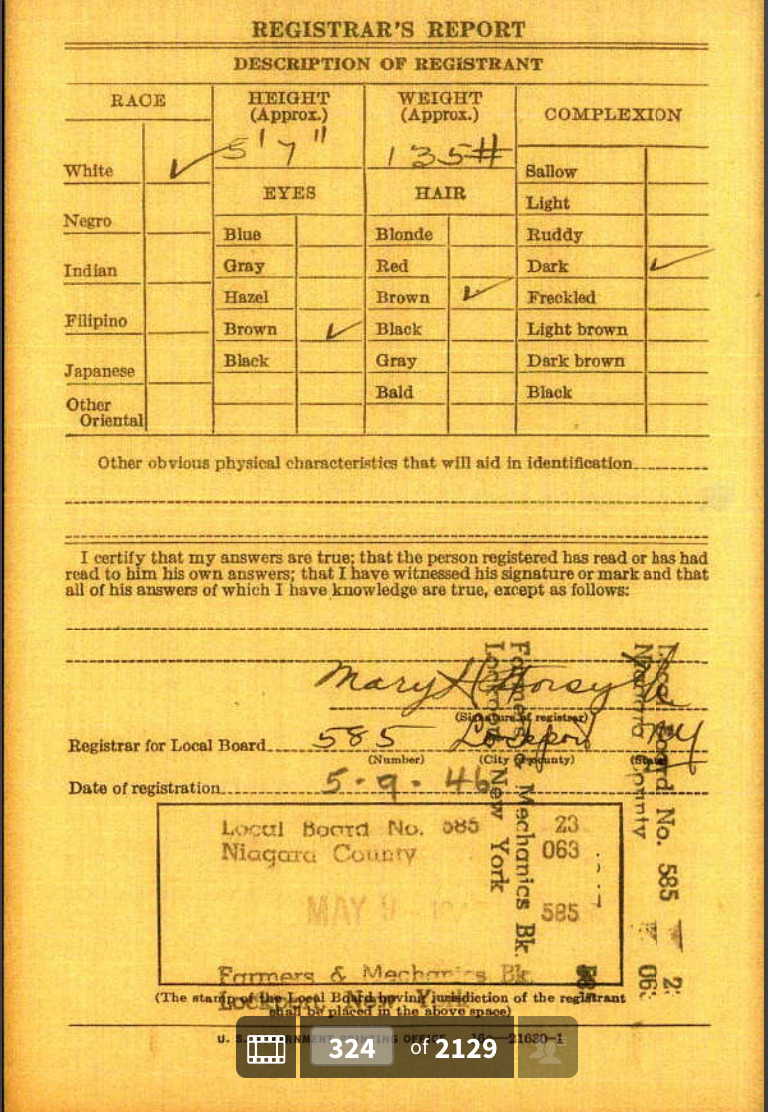 REGISTRAR'S REPORT
DESCRIPTION OF REGISTRANT
RACE
HEIGHT
(Approx.)
WEIGHT
(Approx.)
COMPLEXION
5'7"
135#
White ✓
Negro
Indian
Filipino
Japanese
Other
Oriental
EYES
Blue
Gray
Hazel
Brown ✓
Black
HAIR
Blonde
Red
Brown ✓
Black
Gray
Bald
Sallow
Light
Ruddy
Dark ✓
Freckled
Light brown
Dark brown
Black
Other obvious physical characteristics that will aid in identification
I certify that my answers are true; that the person registered has read or has had
read to him his own answers; that I have witnessed his signature or mark and that
all of his answers of which I have knowledge are true, except as follows:
Mary H Forsyth
(Signature of registrar)
Registrar for Local Board 585 Lockport NY
(Number) (City or county) (State)
Date of registration 5-9-46
Local Board No. 585 23
Niagara County 063
MAY 9 585
Farmers & Mechanics Bk.
Lockport, New York
(The stamp of the Local Board having jurisdiction of the registrant
shall be placed in the above space)
Farmers & Mechanics Bk.
Lockport New York
Local Board No. 585
Niagara County
U. S. GOVERNMENT PRINTING OFFICE 16—21630-1
324 of 2129